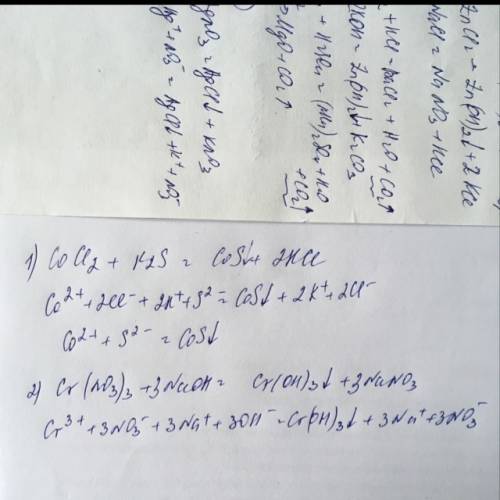 ZnCl2 → Zn(OH)2↓ + 2KCl
NaCl = NaNO3 + HCl
+ HCl = + H2O + CO2↑
KOH = Zn(OH)2↓ + K2CO3
+ H2O
+ CO2↑
MgO + CO2↑
= AgCl↓ + KNO3
= AgCl↓ + K⁺ + NO3⁻
1) CoCl2 + K2S = CoS↓ + 2KCl
Co²⁺ + 2Cl⁻ + 2K⁺ + S²⁻ = CoS↓ + 2K⁺ + 2Cl⁻
Co²⁺ + S²⁻ = CoS↓
2) Cr(NO3)3 + 3NaOH = Cr(OH)3↓ + 3NaNO3
Cr³⁺ + 3NO3⁻ + 3Na⁺ + 3OH⁻ = Cr(OH)3↓ + 3Na⁺ + 3NO3⁻